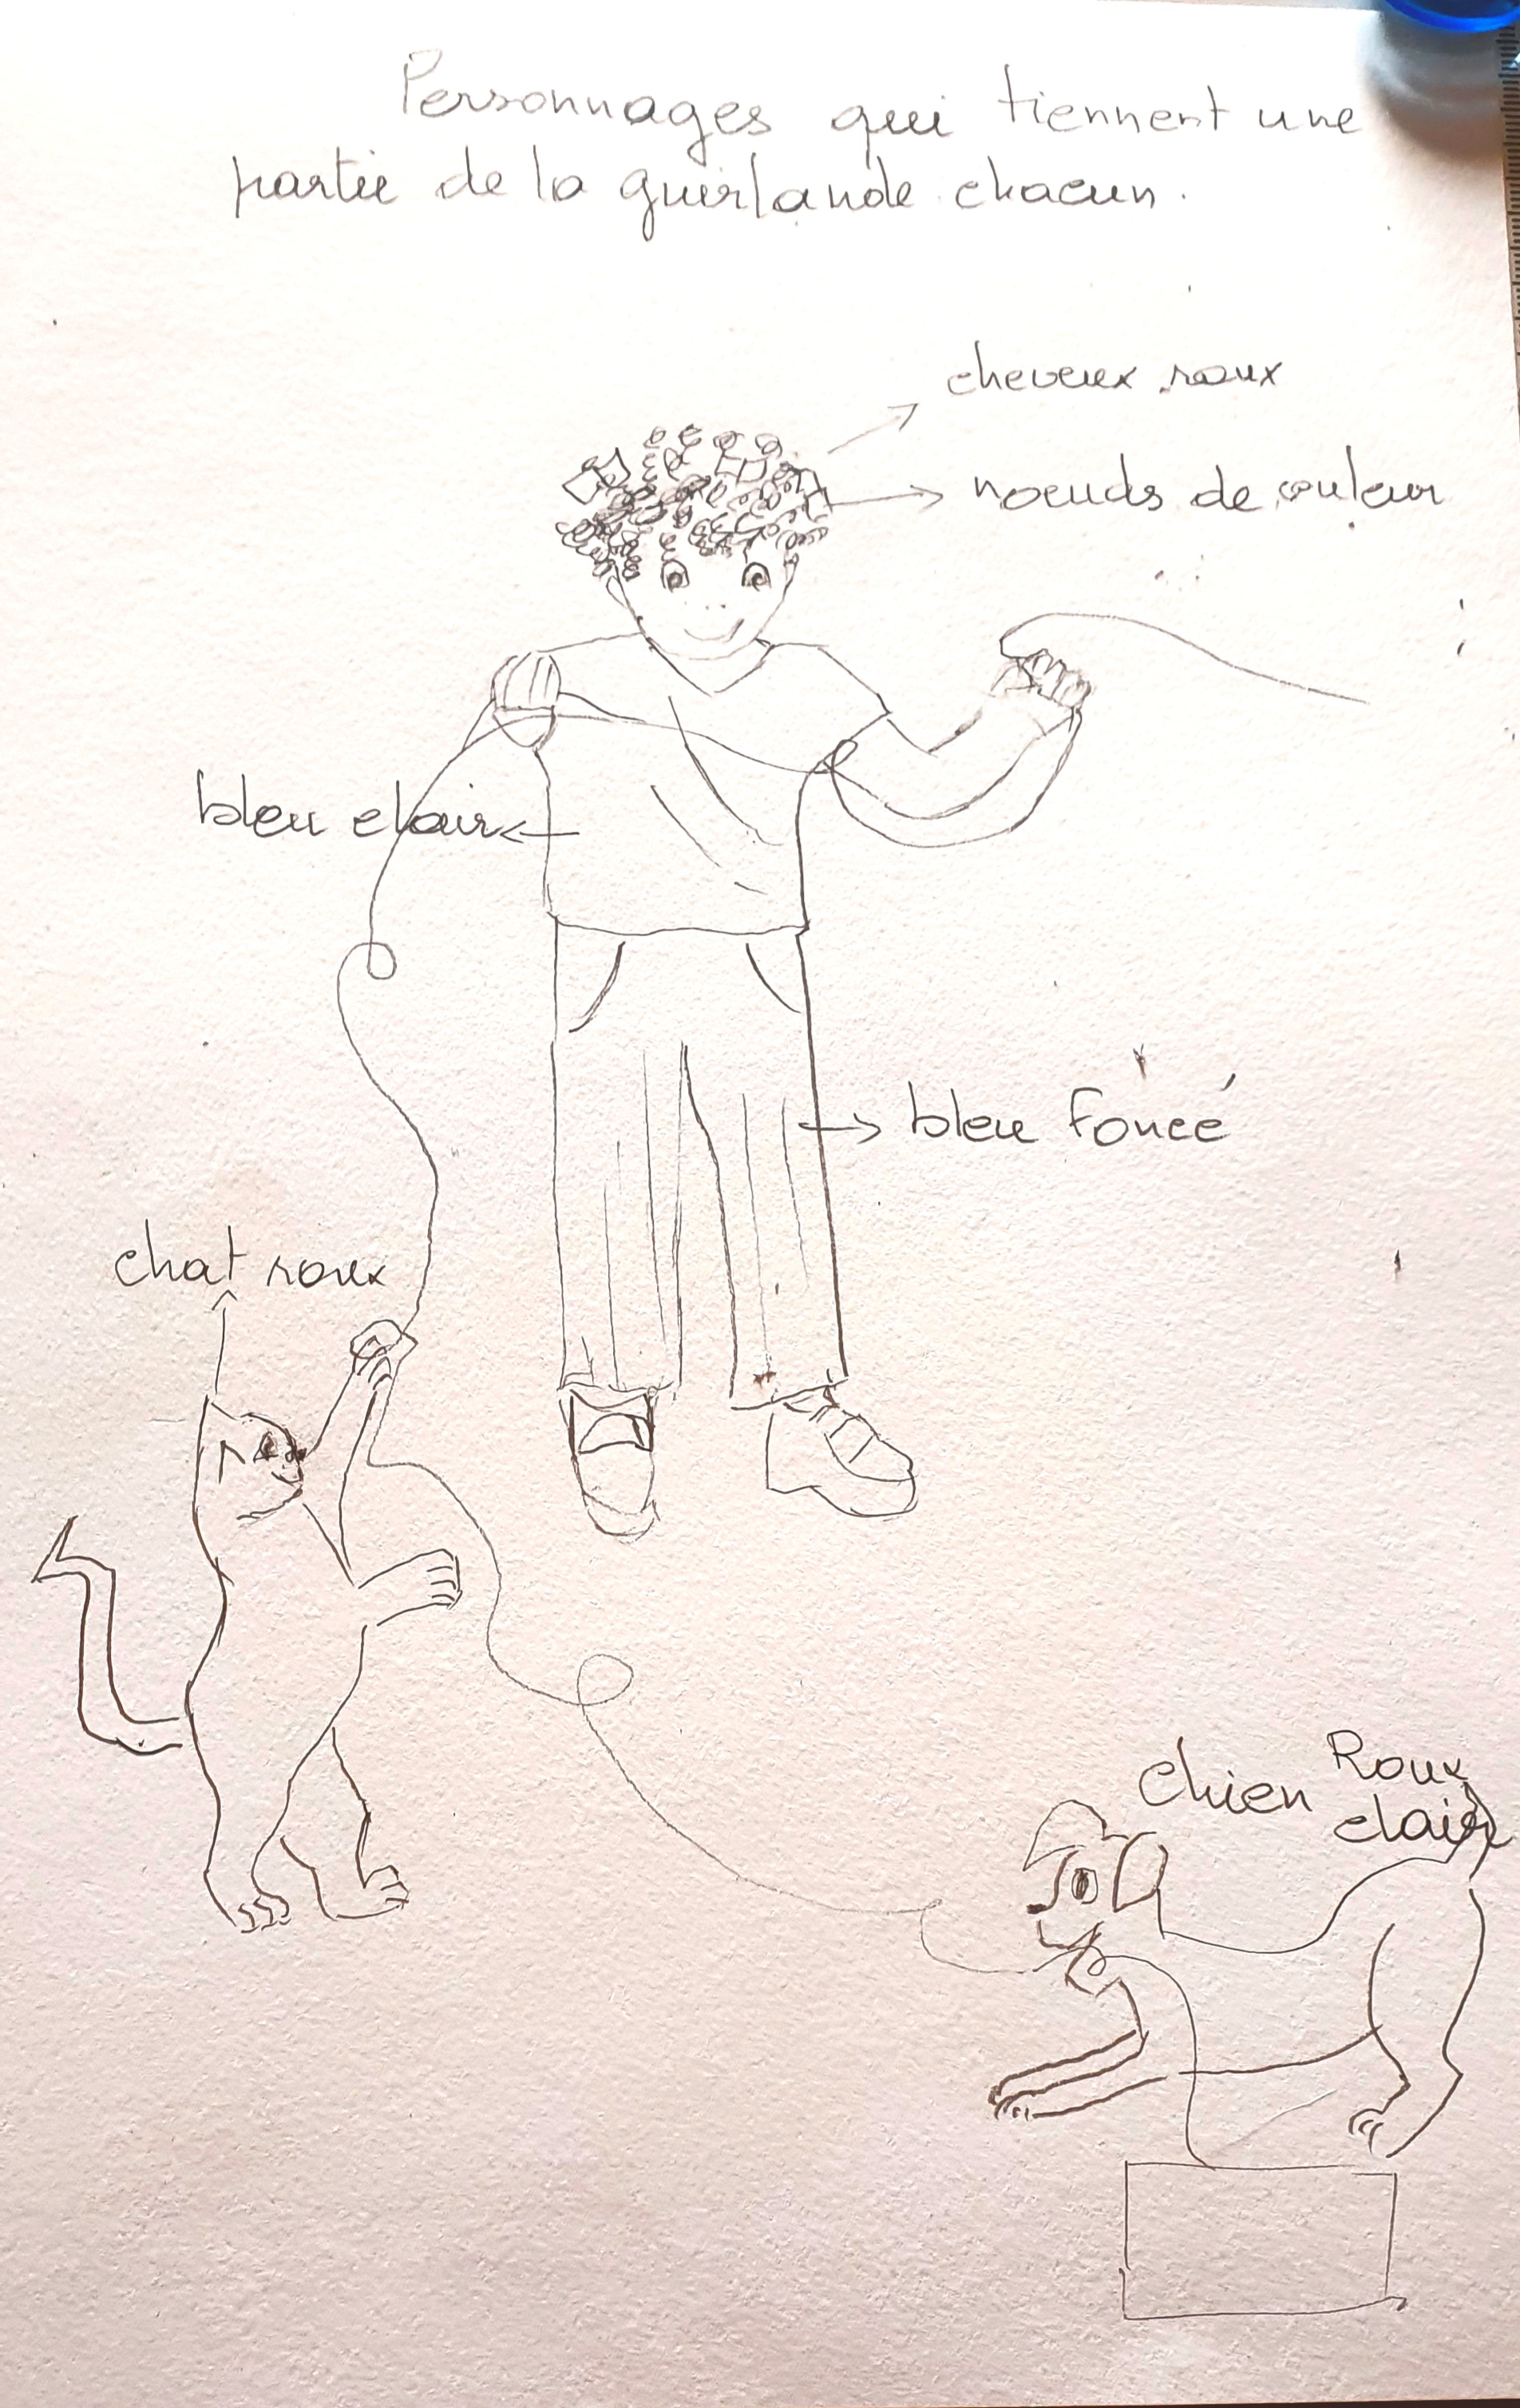 Personnages qui tiennent une
partie de la guirlande chacun.
cheveux roux
noeuds de couleur
bleu clair
bleu foncé
chat roux
chien Roux
clair